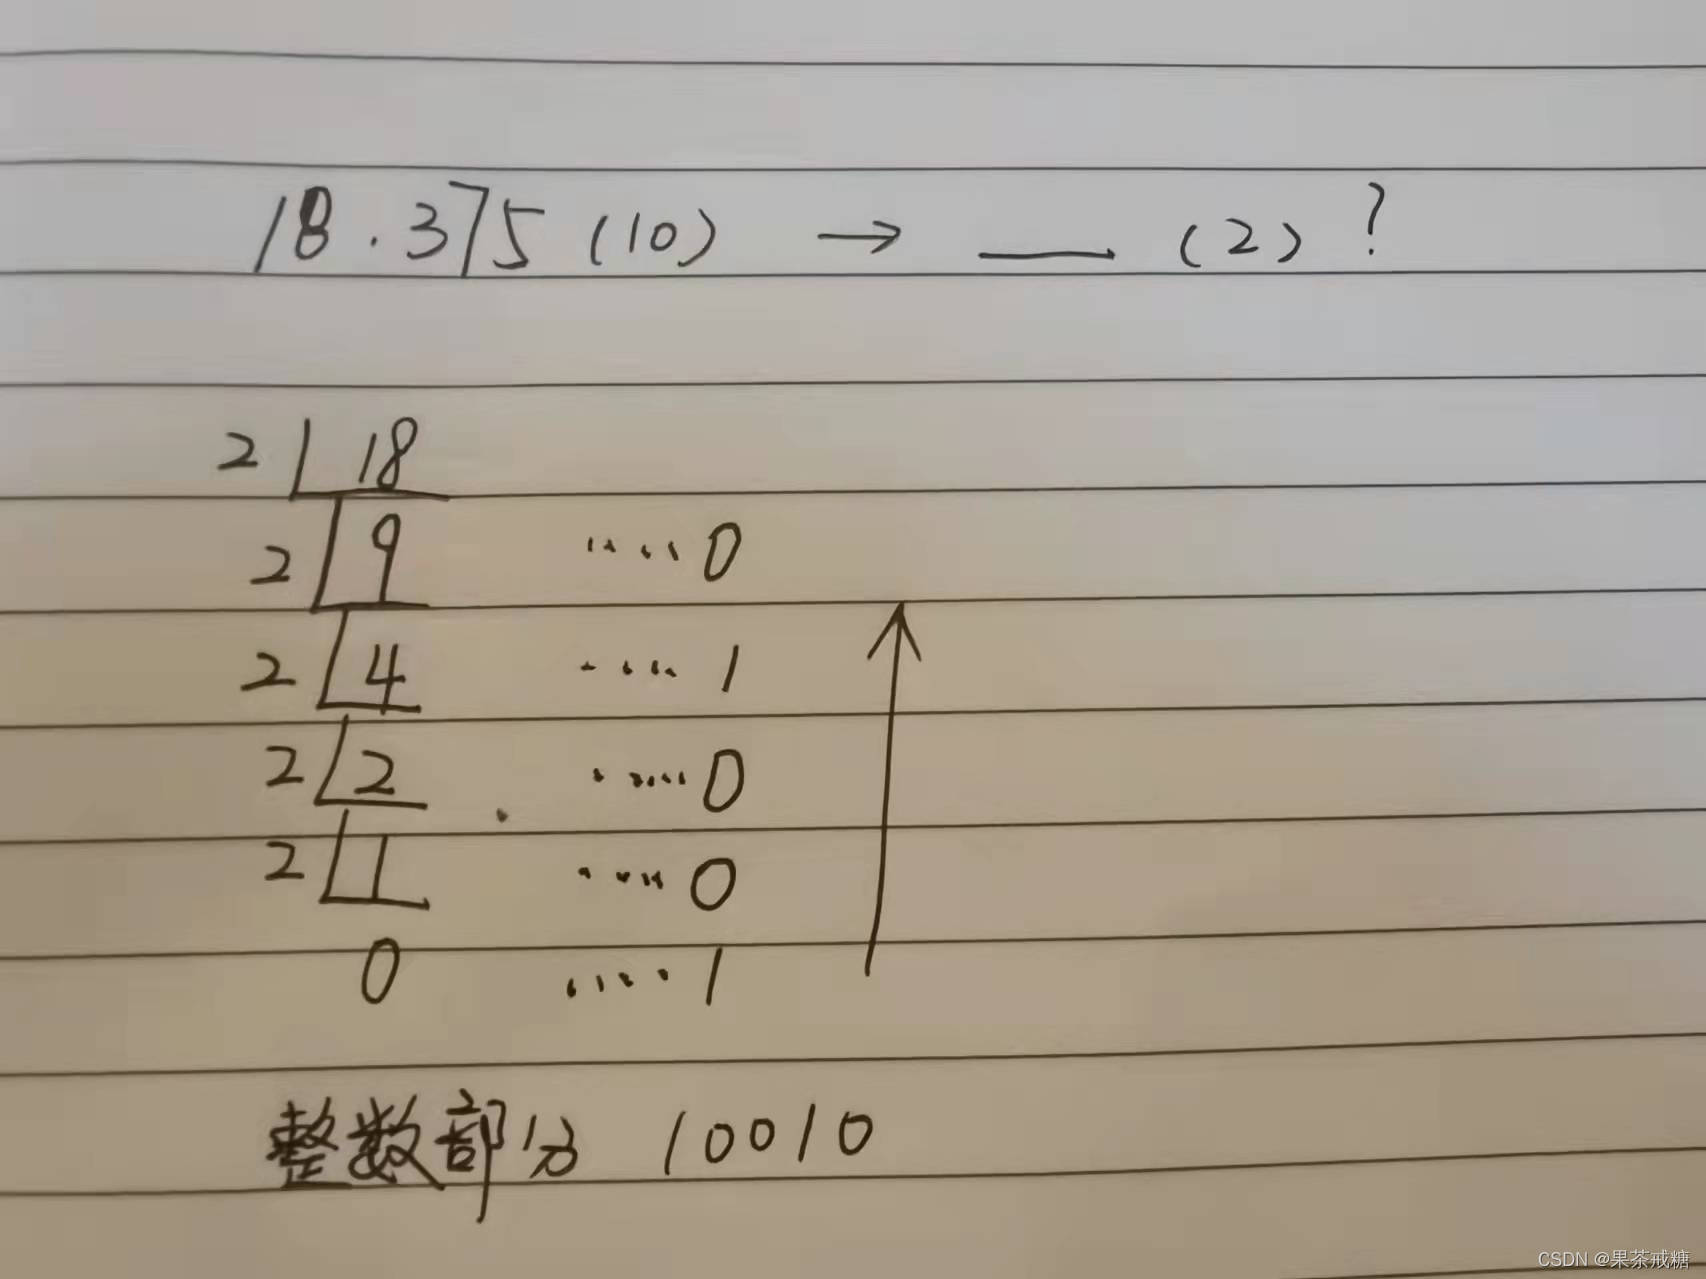 18.375(10) → ___ (2)?
2 18
2 9 ....0
2 4 ....1
2 2 .....0
2 1 ....0
0 .....1
整数部分 10010
CSDN @果茶戒糖